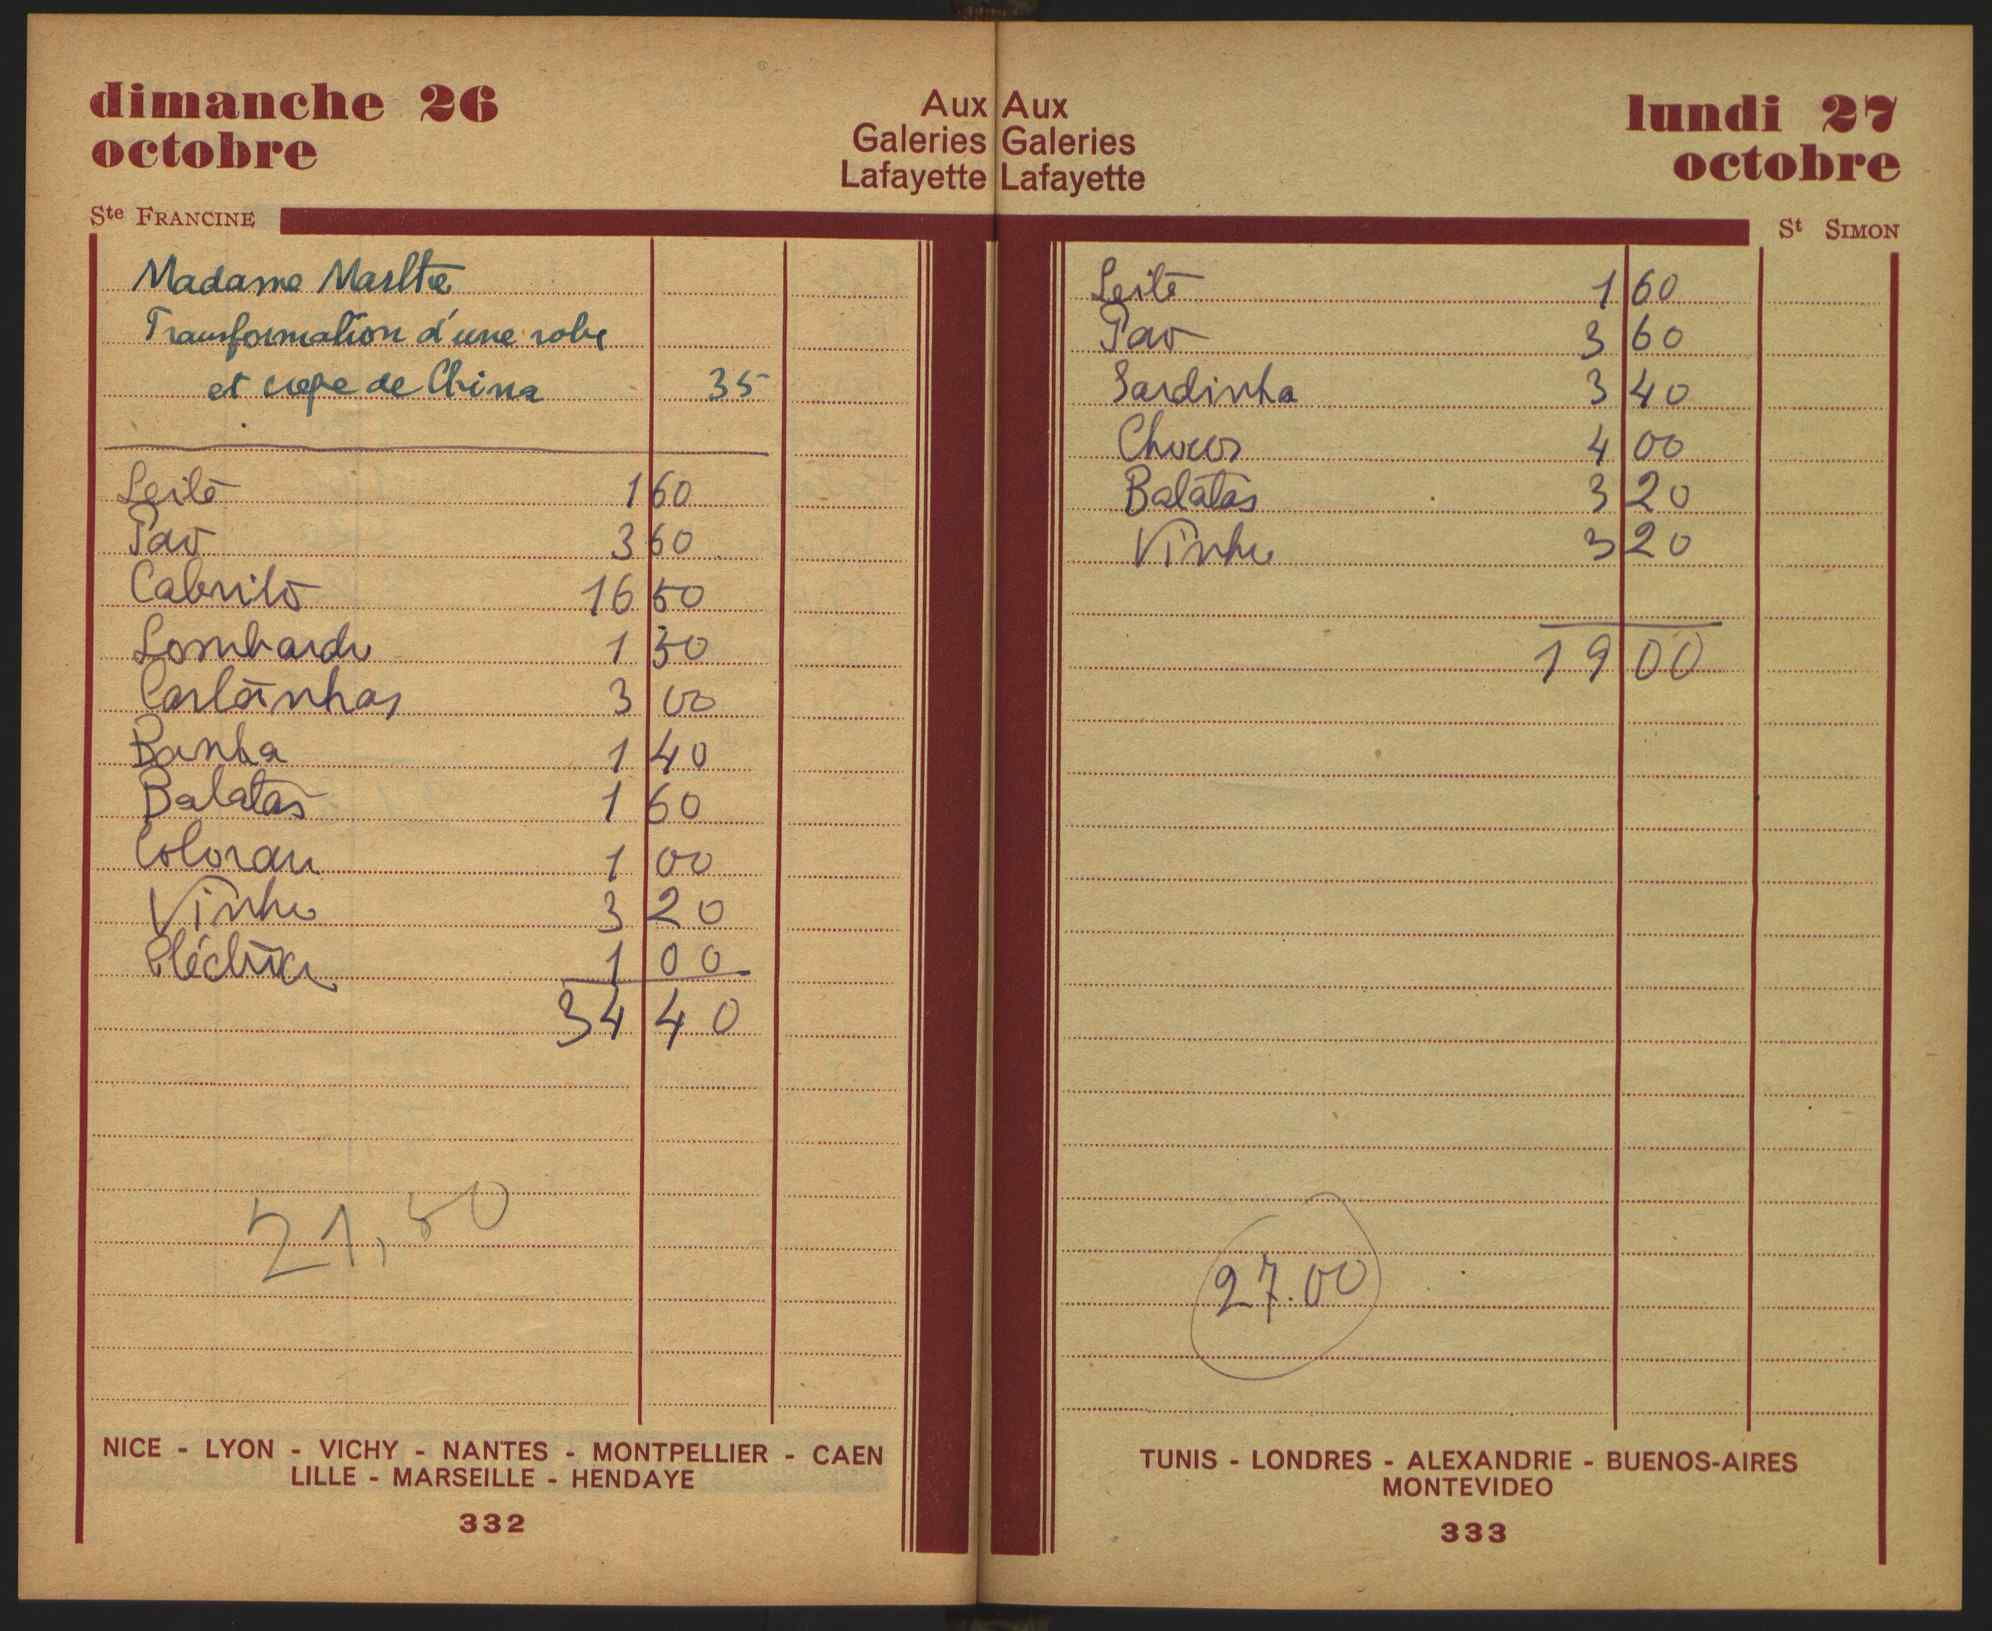 dimanche 26
octobre
Aux
Galeries
Lafayette
Ste FRANCINE
Madame
Transformation d'une robe
et crepe de Chine 35
Leite 1 60
Pao 3 60
Cabrito 16 50
Lombardo 1 50
Castanhas 3 00
Banha 1 40
Batatas 1 60
Colorau 1 00
Vinho 3 20
Eléctrico 1 00
34 40
21,50
NICE - LYON - VICHY - NANTES - MONTPELLIER - CAEN
LILLE - MARSEILLE - HENDAYE
332
Aux
Galeries
Lafayette
lundi 27
octobre
St SIMON
Leite 1 60
Pao 3 60
Sardinha 3 40
Chocos 4 00
Batatas 3 20
Vinho 3 20
19 00
27.00
TUNIS - LONDRES - ALEXANDRIE - BUENOS-AIRES
MONTEVIDEO
333